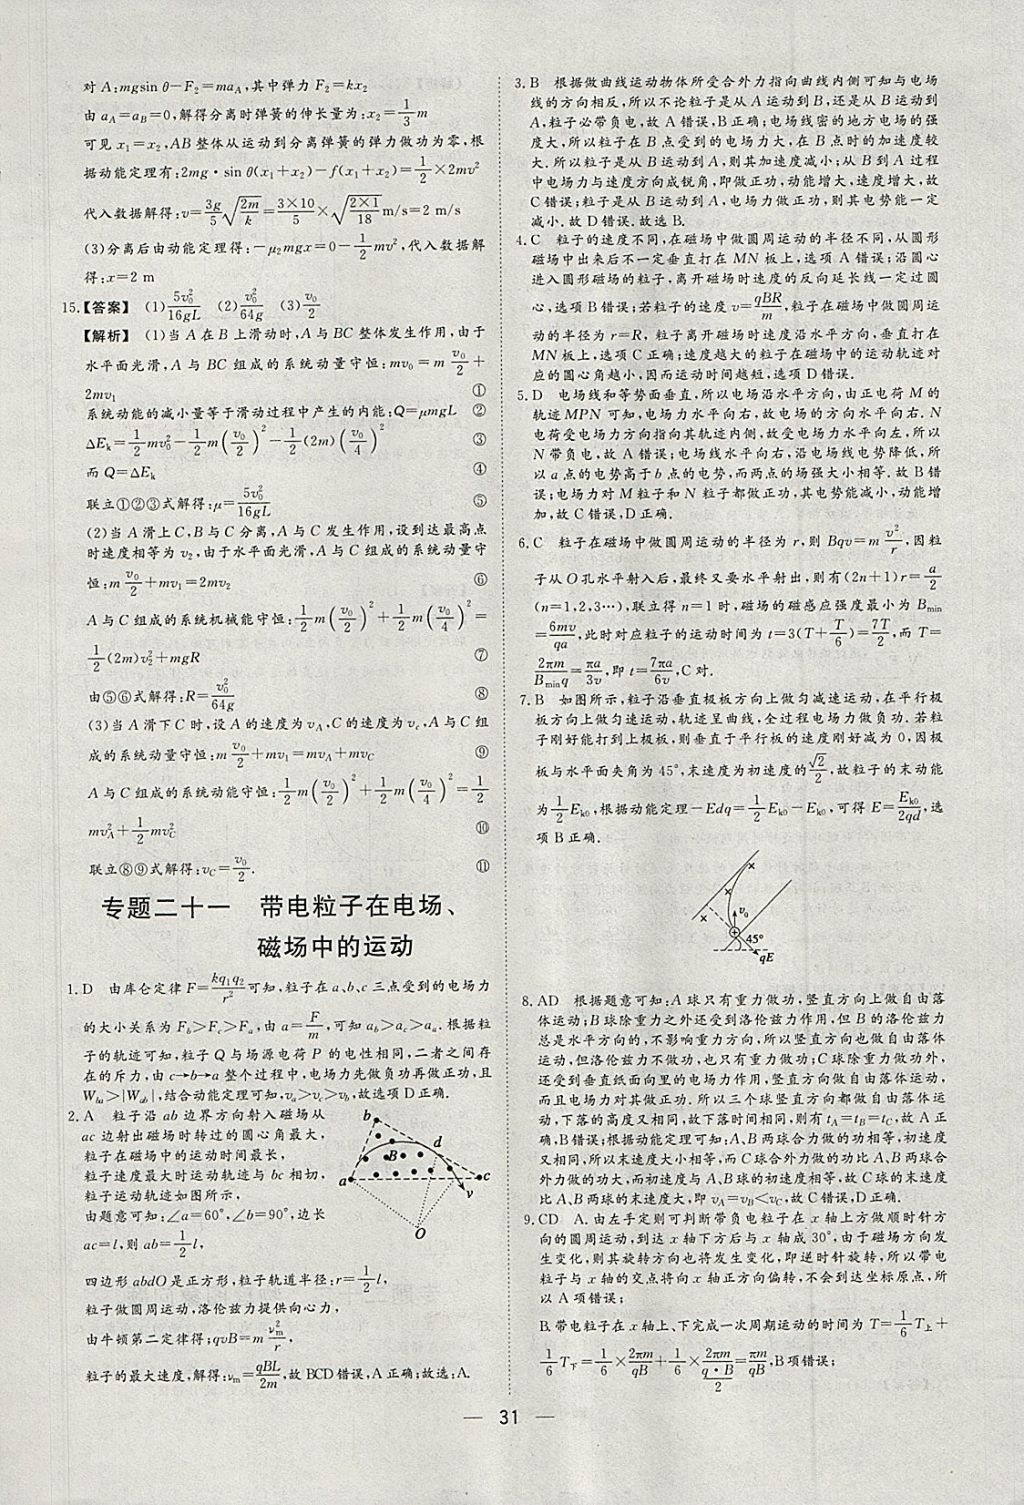 对 A:mgsin θ－F₂=maA,其中弹力 F₂=kx₂
由 aA=aB=0,解得分离时弹簧的伸长量为:x₂=1/3 m
可见 x₁=x₂,AB整体从运动到分离弹簧的弹力做功为零,根
据动能定理有:2mg·sin θ(x₁+x₂)－f(x₁+x₂)=1/2×2mv²
代入数据解得:v=3g/5 √(2m/k)=3×10/5×√(2×1/18)m/s=2 m/s
(3)分离后由动能定理得:－μ₂mgx=0－1/2mv²,代入数据解
得:x=2 m
15.【答案】 (1)5v₀²/16gL (2)v₀²/64g (3)v₀/2
【解析】 (1)当 A 在 B 上滑动时,A 与 BC 整体发生作用,由于
水平面光滑,A 与 BC 组成的系统动量守恒:mv₀=m v₀/2+
2mv₁ ①
系统动能的减小量等于滑动过程中产生的内能:Q=μmgL ②
ΔEk=1/2mv₀²－1/2m(v₀/2)²－1/2(2m)(v₀/4)² ③
而 Q=ΔEk ④
联立①②③式解得:μ=5v₀²/16gL ⑤
(2)当 A 滑上 C,B 与 C 分离,A 与 C 发生作用,设到达最高点
时速度相等为 v₂,由于水平面光滑,A 与 C 组成的系统动量守
恒:m v₀/2+mv₁=2mv₂ ⑥
A 与 C 组成的系统机械能守恒:1/2m(v₀/2)²+1/2m(v₀/4)²=
1/2(2m)v₂²+mgR ⑦
由⑤⑥式解得:R=v₀²/64g ⑧
(3)当 A 滑下 C 时,设 A 的速度为 vA,C 的速度为 vc,A 与 C 组
成的系统动量守恒:m v₀/2+mv₁=mvA+mvC ⑨
A 与 C 组成的系统动能守恒:1/2m(v₀/2)²+1/2m(v₀/4)²=1/2
mvA²+1/2mvC² ⑩
联立⑧⑨式解得:vC=v₀/2. ⑪
专题二十一 带电粒子在电场、
磁场中的运动
1.D 由库仑定律 F=kq₁q₂/r²可知,粒子在 a、b、c 三点受到的电场力
的大小关系为 Fb>Fc>Fa,由 a=F/m,可知 ab>ac>aa.根据粒
子的轨迹可知,粒子 Q 与场源电荷 P 的电性相同,二者之间存
在的斥力,由 c→b→a 整个过程中,电场力先做负功再做正功,且
Wba>|Wab|,结合动能定理可知,va>vc>vb,故选项 D 正确.
2.A 粒子沿 ab 边界方向射入磁场从
ac 边射出磁场时转过的圆心角最大,
粒子在磁场中的运动时间最长,
粒子速度最大时运动轨迹与 bc 相切,
粒子运动轨迹如图所示,
由题意可知:∠a=60°,∠b=90°,边长
ac=l,则 ab=1/2l,
b
d
B
a
c
v
O
四边形 abdO 是正方形,粒子轨道半径:r=1/2l,
粒子做圆周运动,洛伦兹力提供向心力,
由牛顿第二定律得:qvB=m vm²/r,
粒子的最大速度,解得:vm=qBL/2m,故 BCD 错误,A 正确;故选:A.
3.B 根据做曲线运动物体所受合外力指向曲线内侧可知与电场
线的方向相反,所以不论粒子是从 A 运动到 B,还是从 B 运动到
A,粒子必带负电,故 A 错误,B 正确;电场线密的地方电场的强
度大,所以粒子在 B 点受到的电场力大,在 B 点时的加速度较
大.所以粒子是从 B 运动到 A,则其加速度减小;从 B 到 A 过程
中电场力与速度方向成锐角,即做正功,动能增大,速度增大,故
C 错误;粒子是从 B 运动到 A,电场力做正功,则其电势能一定
减小.故 D 错误.故选 B.
4.C 粒子的速度不同,在磁场中做圆周运动的半径不同,从圆形
磁场中出来后不一定垂直打在 MN 板上,选项 A 错误;沿圆心
进入圆形磁场的粒子,离开磁场时速度的反向延长线一定过圆
心,选项 B 错误;若粒子的速度 v=qBR/m,粒子在磁场中做圆周运
动的半径为 r=R, 粒子离开磁场时速度沿水平方向,垂直打在
MN 板上,选项 C 正确;速度越大的粒子在磁场中的运动轨迹对
应的圆心角越小,因而运动时间越短,选项 D 错误.
5.D 电场线和等势面垂直,所以电场沿水平方向,由正电荷 M 的
轨迹 MPN 可知,电场力水平向右,故电场的方向水平向右. N
电荷受电场力方向指向其轨迹内侧,故受电场力水平向左,所以
N 带负电,故 A 错误;电场线水平向右,沿电场线电势降低,所
以 a 点的电势高于 b 点的电势,而两点的场强大小相等.故 B 错
误;电场力对 M 粒子和 N 粒子都做正功,其电势能减小,动能增
加,故 C 错误,D 正确.
6.C 粒子在磁场中做圆周运动的半径为 r,则 Bqv=m v²/r,因粒
子从 O 孔水平射入后,最终又要水平射出,则有(2n+1)r=a/2
(n=1,2,3…),联立得 n=1 时,磁场的磁感应强度最小为 Bmin
=6mv/qa,此时对应粒子的运动时间为 t=3(T+T/6)=7T/2,而 T=
2πm/Bminq=πa/3v,即 t=7πa/6v,C 对.
7.B 如图所示,粒子沿垂直极板方向上做匀减速运动,在平行极
板方向上做匀速运动,轨迹呈曲线,全过程电场力做负功.若粒
子刚好能打到上极板,则垂直于平行板的速度刚好减为 0,因极
板与水平面夹角为 45°,末速度为初速度的√2/2,故粒子的末动能
为1/2Ek0,根据动能定理－Edq=1/2Ek0－Ek0,可得 E=Ek0/2qd,选
项 B 正确.
v₀
45°
qE
8.AD 根据题意可知:A 球只有重力做功,竖直方向上做自由落
体运动;B 球除重力之外还受到洛伦兹力作用,但 B 的洛伦兹力
总是水平方向的,不影响重力方向,所以竖直方向也做自由落体
运动,但洛伦兹力不做功,也只有重力做功;C 球除重力做功外,
还受到垂直纸面向里的电场力作用,竖直方向做自由落体运动,
且电场力对其做正功.所以三个球竖直方向都做自由落体运
动,下落的高度又相同,故下落时间相同,则有 tA=tB=tC,故 A 正
确,B 错误;根据动能定理可知:A、B 两球合力做的功相等,初速度
又相同,所以末速度大小相等,而 C 球合外力做的功比 A、B 两球合
外力做的功大,而初速度与 A、B 球的初速度相等,故 C 球的末速度
比 A、B 两球的末速度大,即 vA=vB<vC,故 C 错误,D 正确.
9.CD A.由左手定则可判断带负电粒子在 x 轴上方做顺时针方
向的圆周运动,到达 x 轴下方后与 x 轴成 30°,由于磁场方向发
生变化,则其旋转方向也将发生变化,即逆时针旋转,所以带电
粒子与 x 轴的交点将向 x 轴正方向偏转,不会到达坐标原点,所
以 A 项错误;
B.带电粒子在 x 轴上、下完成一次周期运动的时间为 T=1/6T上+
1/6T下=1/6×2πm/qB+1/6×2πm/(q·B/2)=πm/qB,B 项错误;
— 31 —